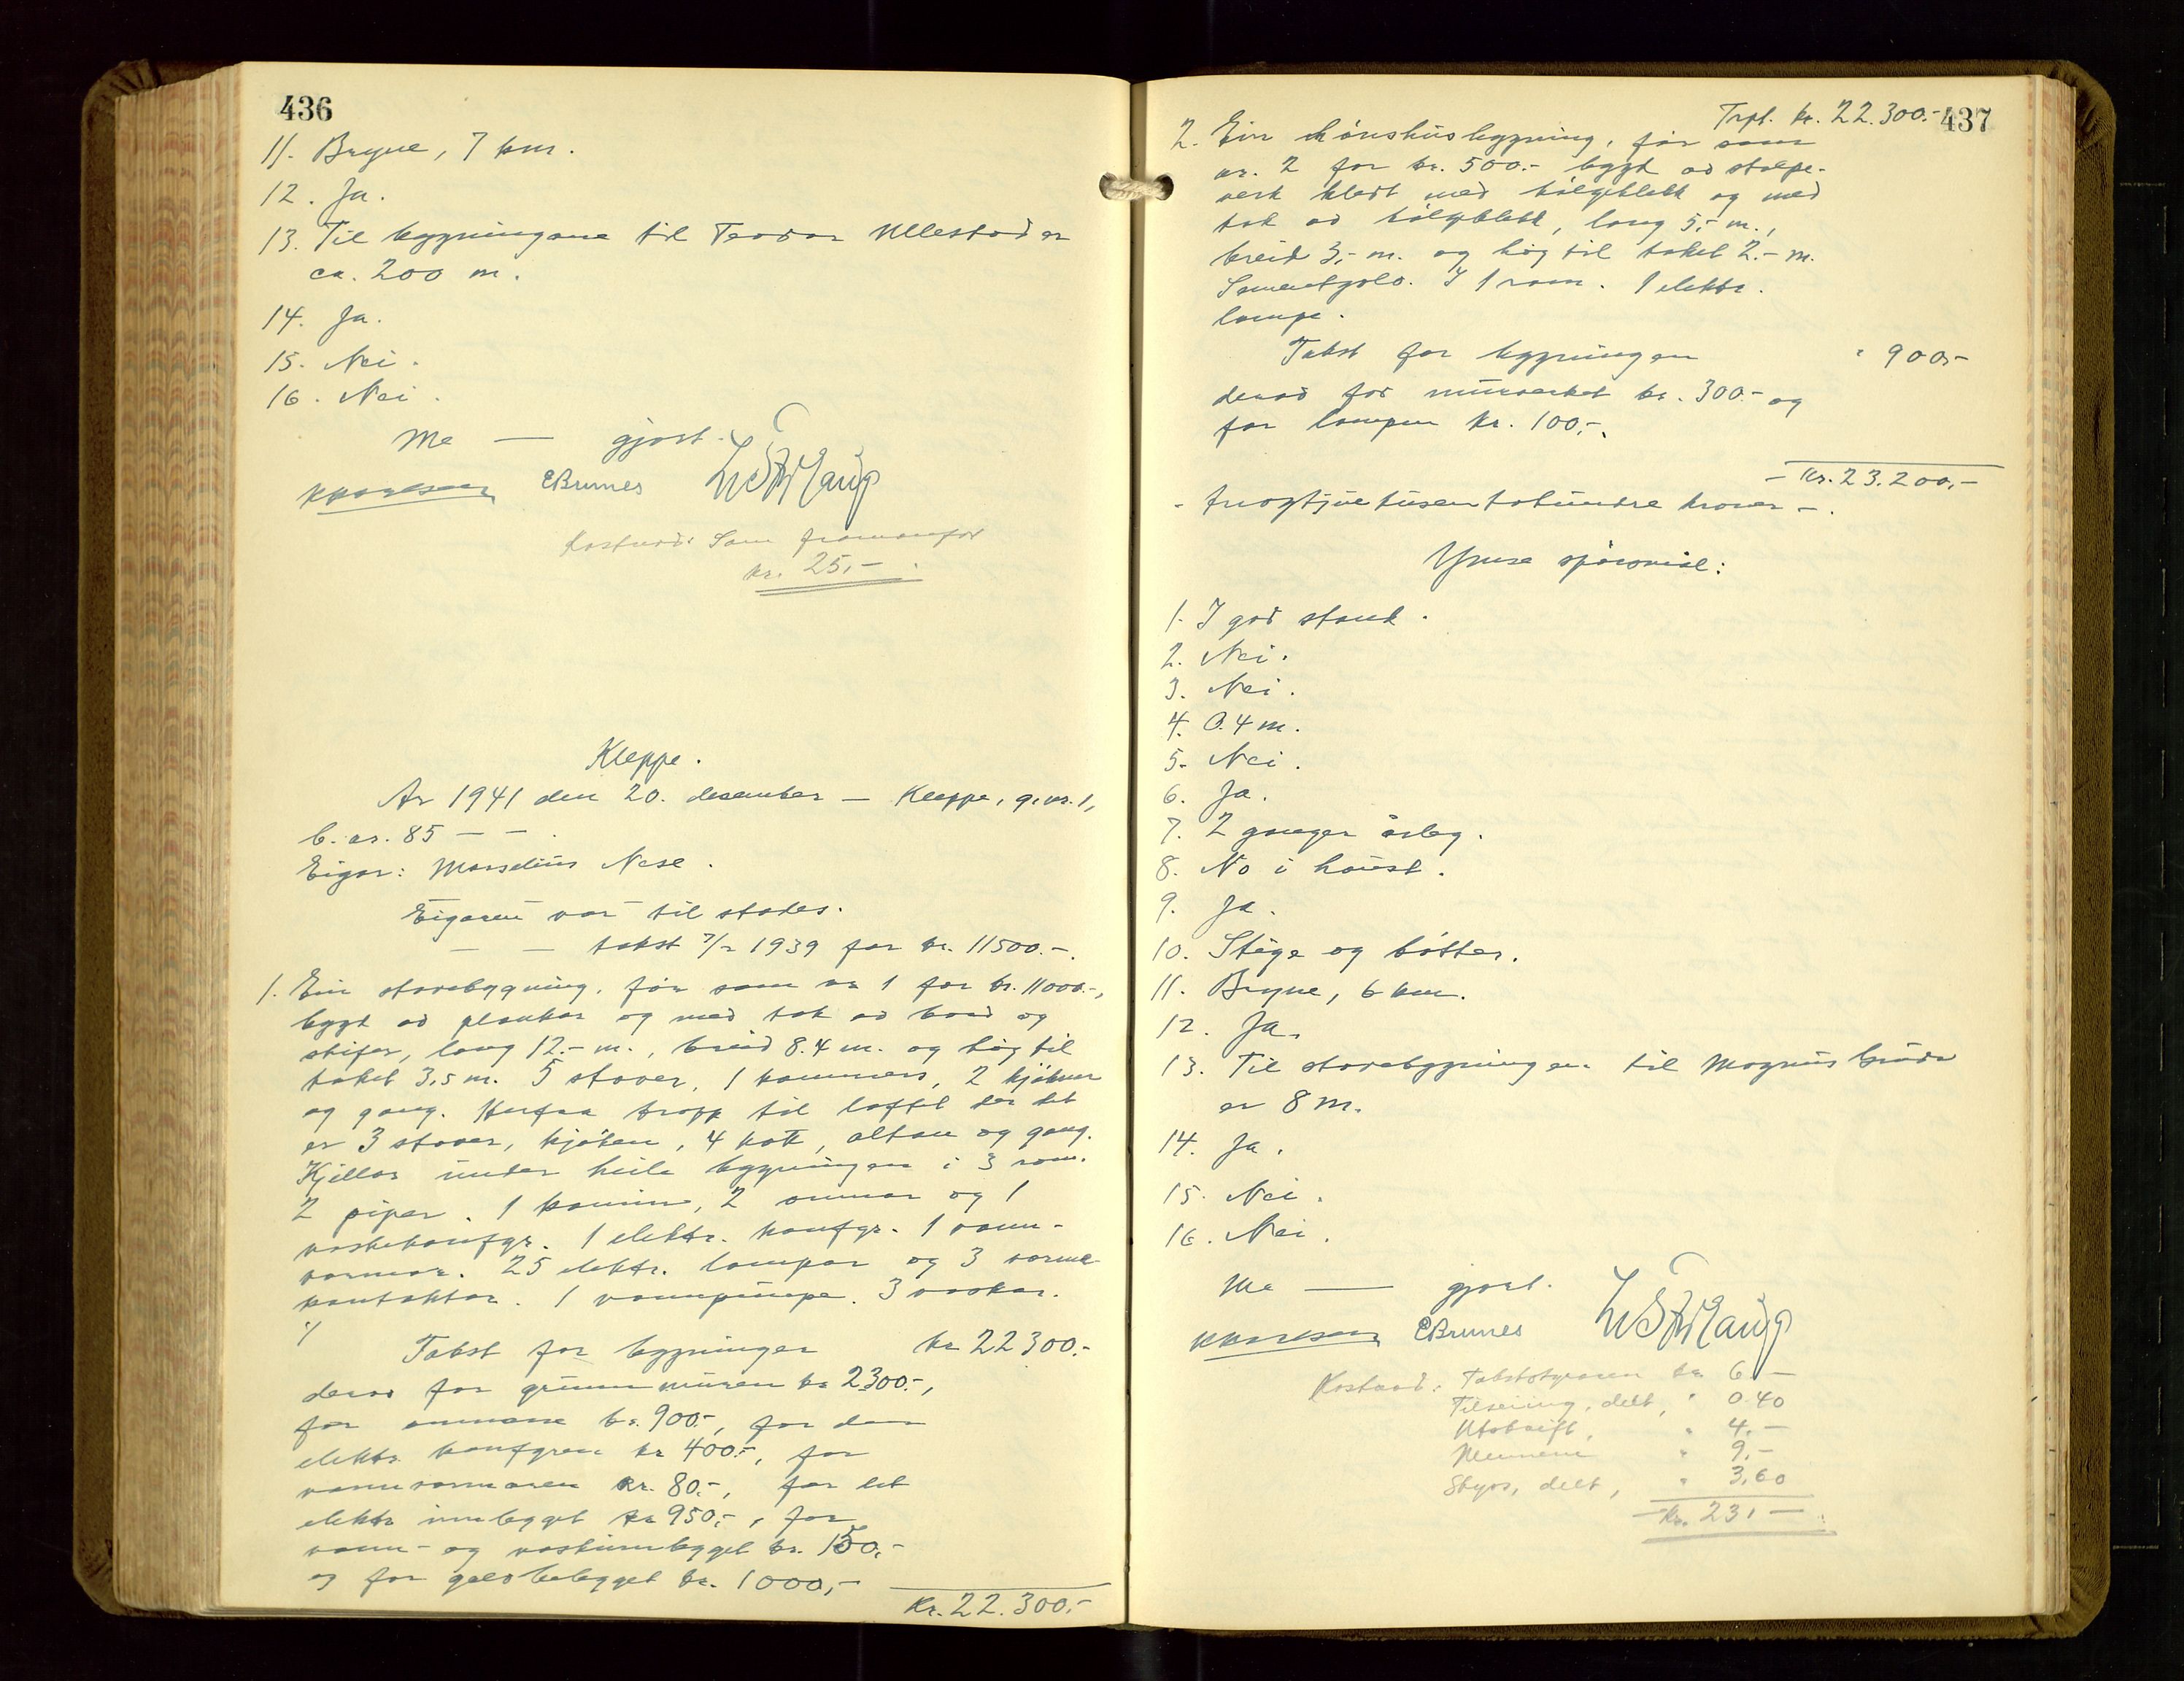 436
11. Bryne, 7 km.
12. Ja.
13. Til bygningane til Teodor Ullestad er
ca. 200 m.
14. Ja.
15. Nei.
16. Nei.
Me — gjort.
EBrunes
Kostnad: Som framanfor
kr. 25,-.
Kleppe.
År 1941 den 20. desember — Kleppe, g.nr. 1,
b.nr. 85 — —.
Eigar: Marselius Nese.
Eigaren var til stades.
— — takst 7/2 1939 for kr. 11500.-.
1. Ein stovebygning, før som nr 1 for kr. 11000.-,
bygt av plankar og med tak av bord og
skifer, lang 12.- m., breid 8.4 m. og høg til
taket 3,5 m. 5 stover, 1 kammers, 2 kjøkner
og gang. Herfraa tropp til loftet der det
er 3 stover, kjøken, 4 kott, altan og gang.
Kjellar under heile bygningen i 3 rom.
2 piper. 1 kamin, 2 omnar og 1
vaskekomfyr. 1 elektr. komfyr. 1 vann-
varmar. 25 elektr. lampar og 3 varme
kontaktar. 1 vannpumpe. 3 vaskar.
Takst for bygningen kr 22300.-
derav for grunnmuren kr 2300.-,
for omnane kr. 900.-, for den
elektr. komfyren kr 400.-, for
vannvarmaren kr. 80.-, for det
elektr innlegget kr 950,-, for
vann- og vaskinnlegget kr. 150,-
og for golvbelegget kr. 1000,-
Kr. 22.300.-
437
Trpt. kr. 22.300.-
2. Ein hønshusbygning, før som
nr. 2 for kr. 500.- bygt av stolpe-
verk kledt med bølgjeblekk og med
tak av bølgjeblekk, lang 5,- m.,
breid 3,- m. og høg til taket 2.- m.
Sementgolv. I 1 rom. 1 elektr.
lampe.
Takst for bygningen " 900.-
derav for murverket kr. 300.- og
for lampen kr. 100,-.
- Kr. 23.200,-
- tjuogtrjetusentohundre kroner -.
Ymse spørsmål:
1. I god stand.
2. Nei.
3. Nei.
4. 0.4 m.
5. Nei.
6. Ja.
7. 2 ganger årleg.
8. No i haust.
9. Ja.
10. Stige og bøtter.
11. Bryne, 6 km.
12. Ja.
13. Til stovebygningen til Magnus Gruda
er 8 m.
14. Ja.
15. Nei.
16. Nei.
Me — gjort.
EBrunes
Kostnad: Takststyraren kr. 6.-
Tilseiing, delt, " 0.40
Utskrift, " 4.-
Mennene " 9,-
Skyss, delt, " 3,60
Kr. 23,-